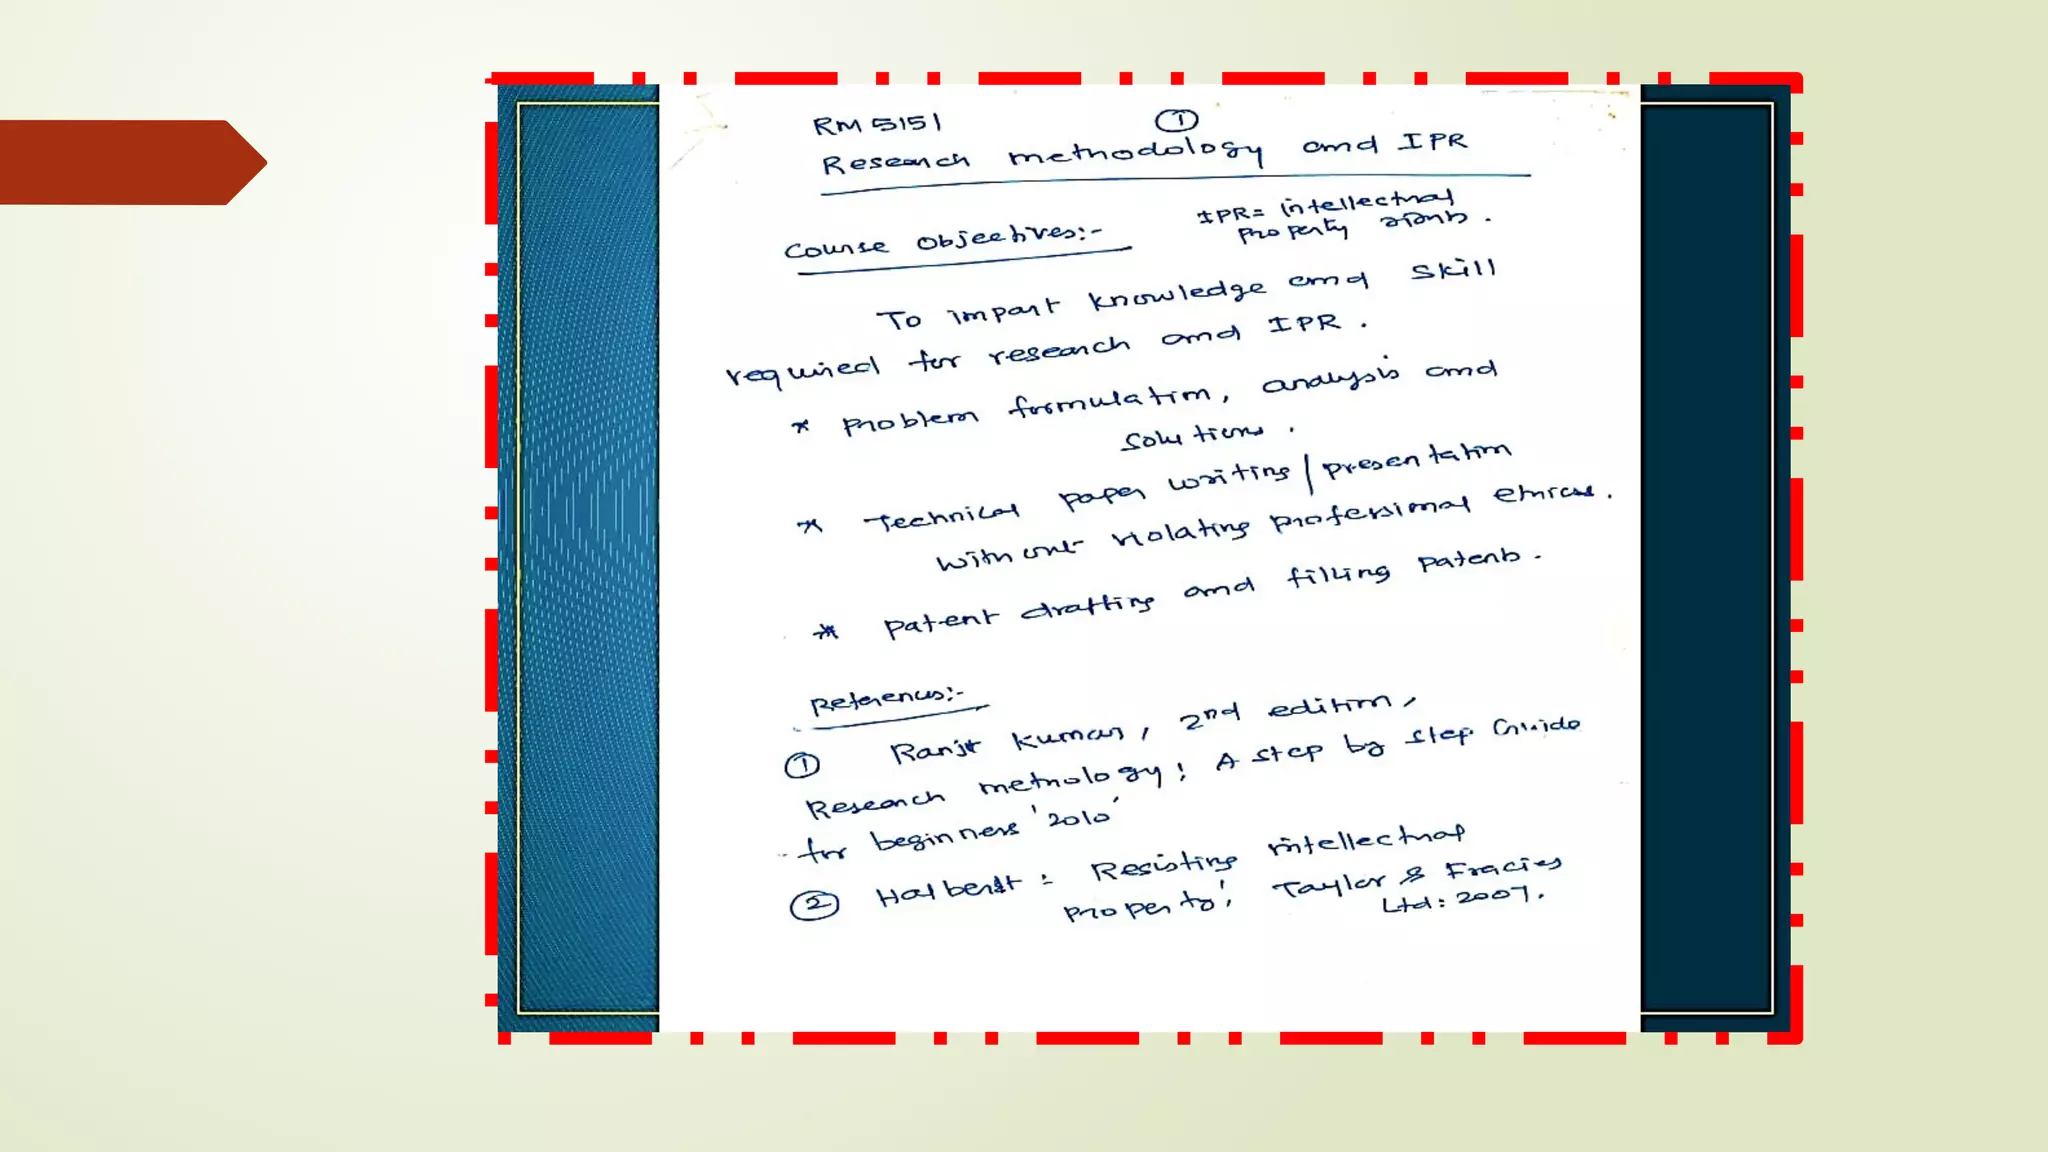 RM 5151
①
Research methodology and IPR
IPR = intellectual
Property rights.
Course Objectives:-
To impart knowledge and skill
required for research and IPR.
* Problem formulation, analysis and
solutions.
* Technical paper writing / presentation
without violating professional ethics.
* Patent drafting and filling patents.
References:-
① Ranjit Kumar, 2nd edition,
Research methology; A step by step Guide
for beginners '2010'
② Halberst: Resisting intellectual
Property', Taylor & Fracies
Ltd: 2007.